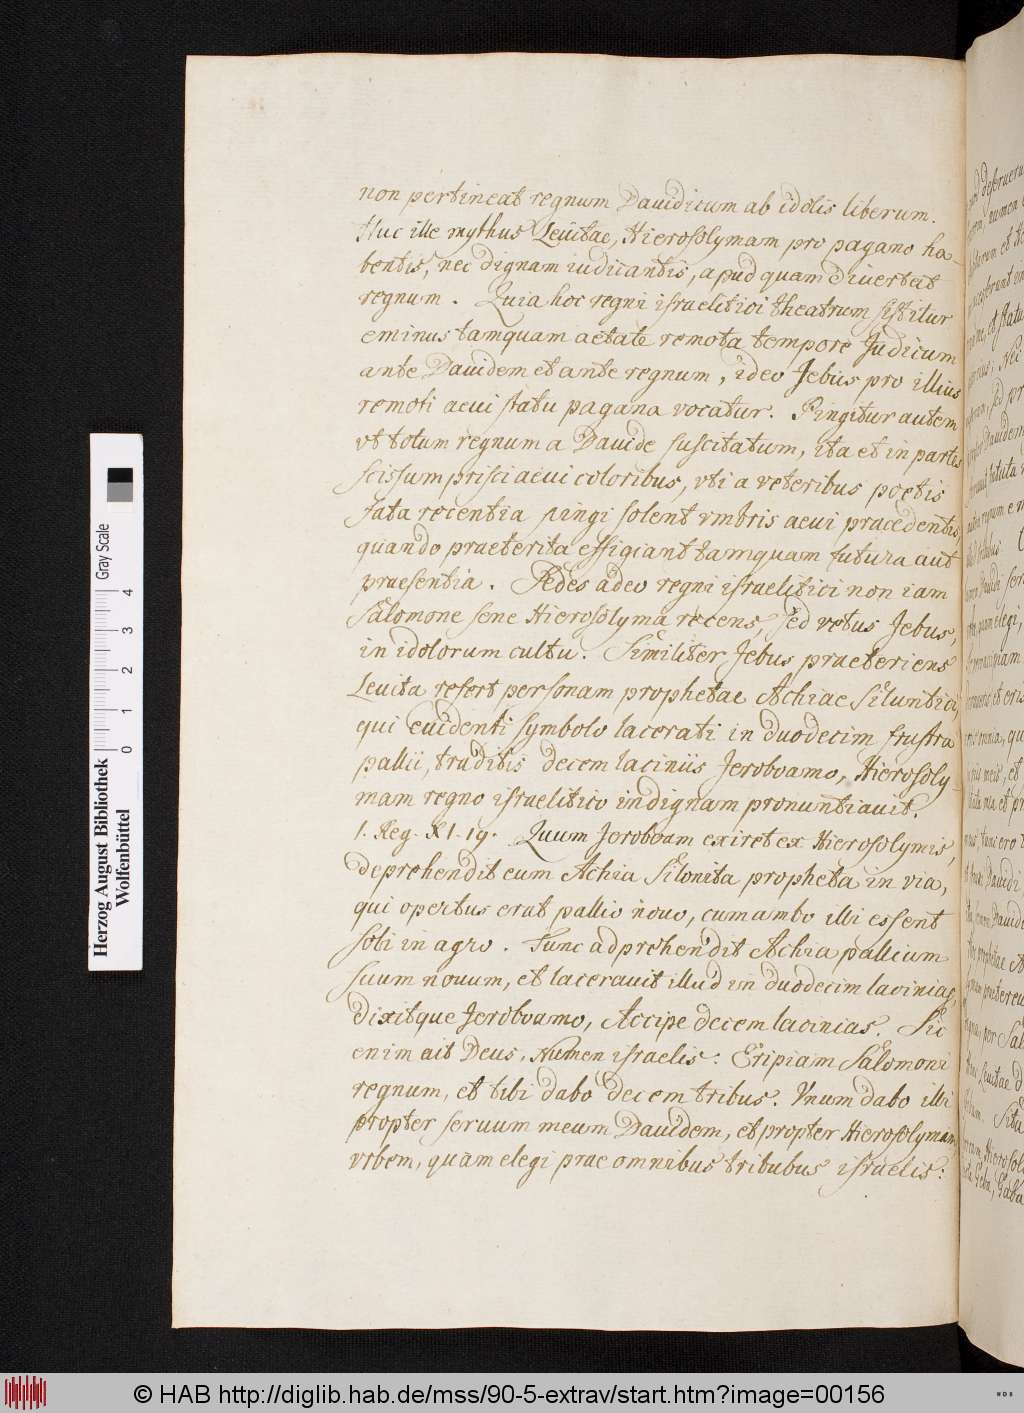 non pertineat regnum Dauidicum ab idolis liberum.
Huc ille mythus Leuitae, Hierosolymam pro pagano ha-
bentis, nec dignam iudicantis, apud quam diuertat
regnum. Quia hoc regni israelitici theatrum sistitur
eminus tamquam aetate remota tempore Judicum
ante Dauidem et ante regnum, ideo Jebus pro illius
remoti aeui statu pagana vocatur. Pingitur autem
vt totum regnum a Dauide suscitatum, ita et in partes
scissum prisci aeui coloribus, vti a veteribus poetis
fata recentia pingi solent vmbris aeui praecedentis,
quando praeterita effigiant tamquam futura aut
praesentia. Sedes adeo regni israelitici non iam
Salomone sene Hierosolyma recens, sed vetus Jebus,
in idolorum cultu. Similiter Jebus praeteriens
Leuita refert personam prophetae Achiae Siluntici,
qui euidenti symbolo lacerati in duodecim frustra
pallii, traditis decem laciniis Jeroboamo, Hierosoly-
mam regno israelitico indignam pronuntiauit.
1. Reg. XI. 19. Quum Jeroboam exiret ex Hierosolymis,
deprehendit eum Achia Silonita propheta in via,
qui opertus erat pallio nouo, cum ambo illi essent
soli in agro. Tunc adprehendit Achia pallium
suum nouum, et lacerauit illud in duodecim lacinias,
dixitque Jeroboamo, Accipe decem lacinias. Sic
enim ait Deus, Numen israelis: Eripiam Salomoni
regnum, et tibi dabo decem tribus. Vnum dabo illi
propter seruum meum Dauidem, et propter Hierosolymam
vrbem, quam elegi prae omnibus tribubus israelis:
Herzog August Bibliothek
Wolfenbüttel
0 1 2 3 4
Gray Scale
© HAB http://diglib.hab.de/mss/90-5-extrav/start.htm?image=00156